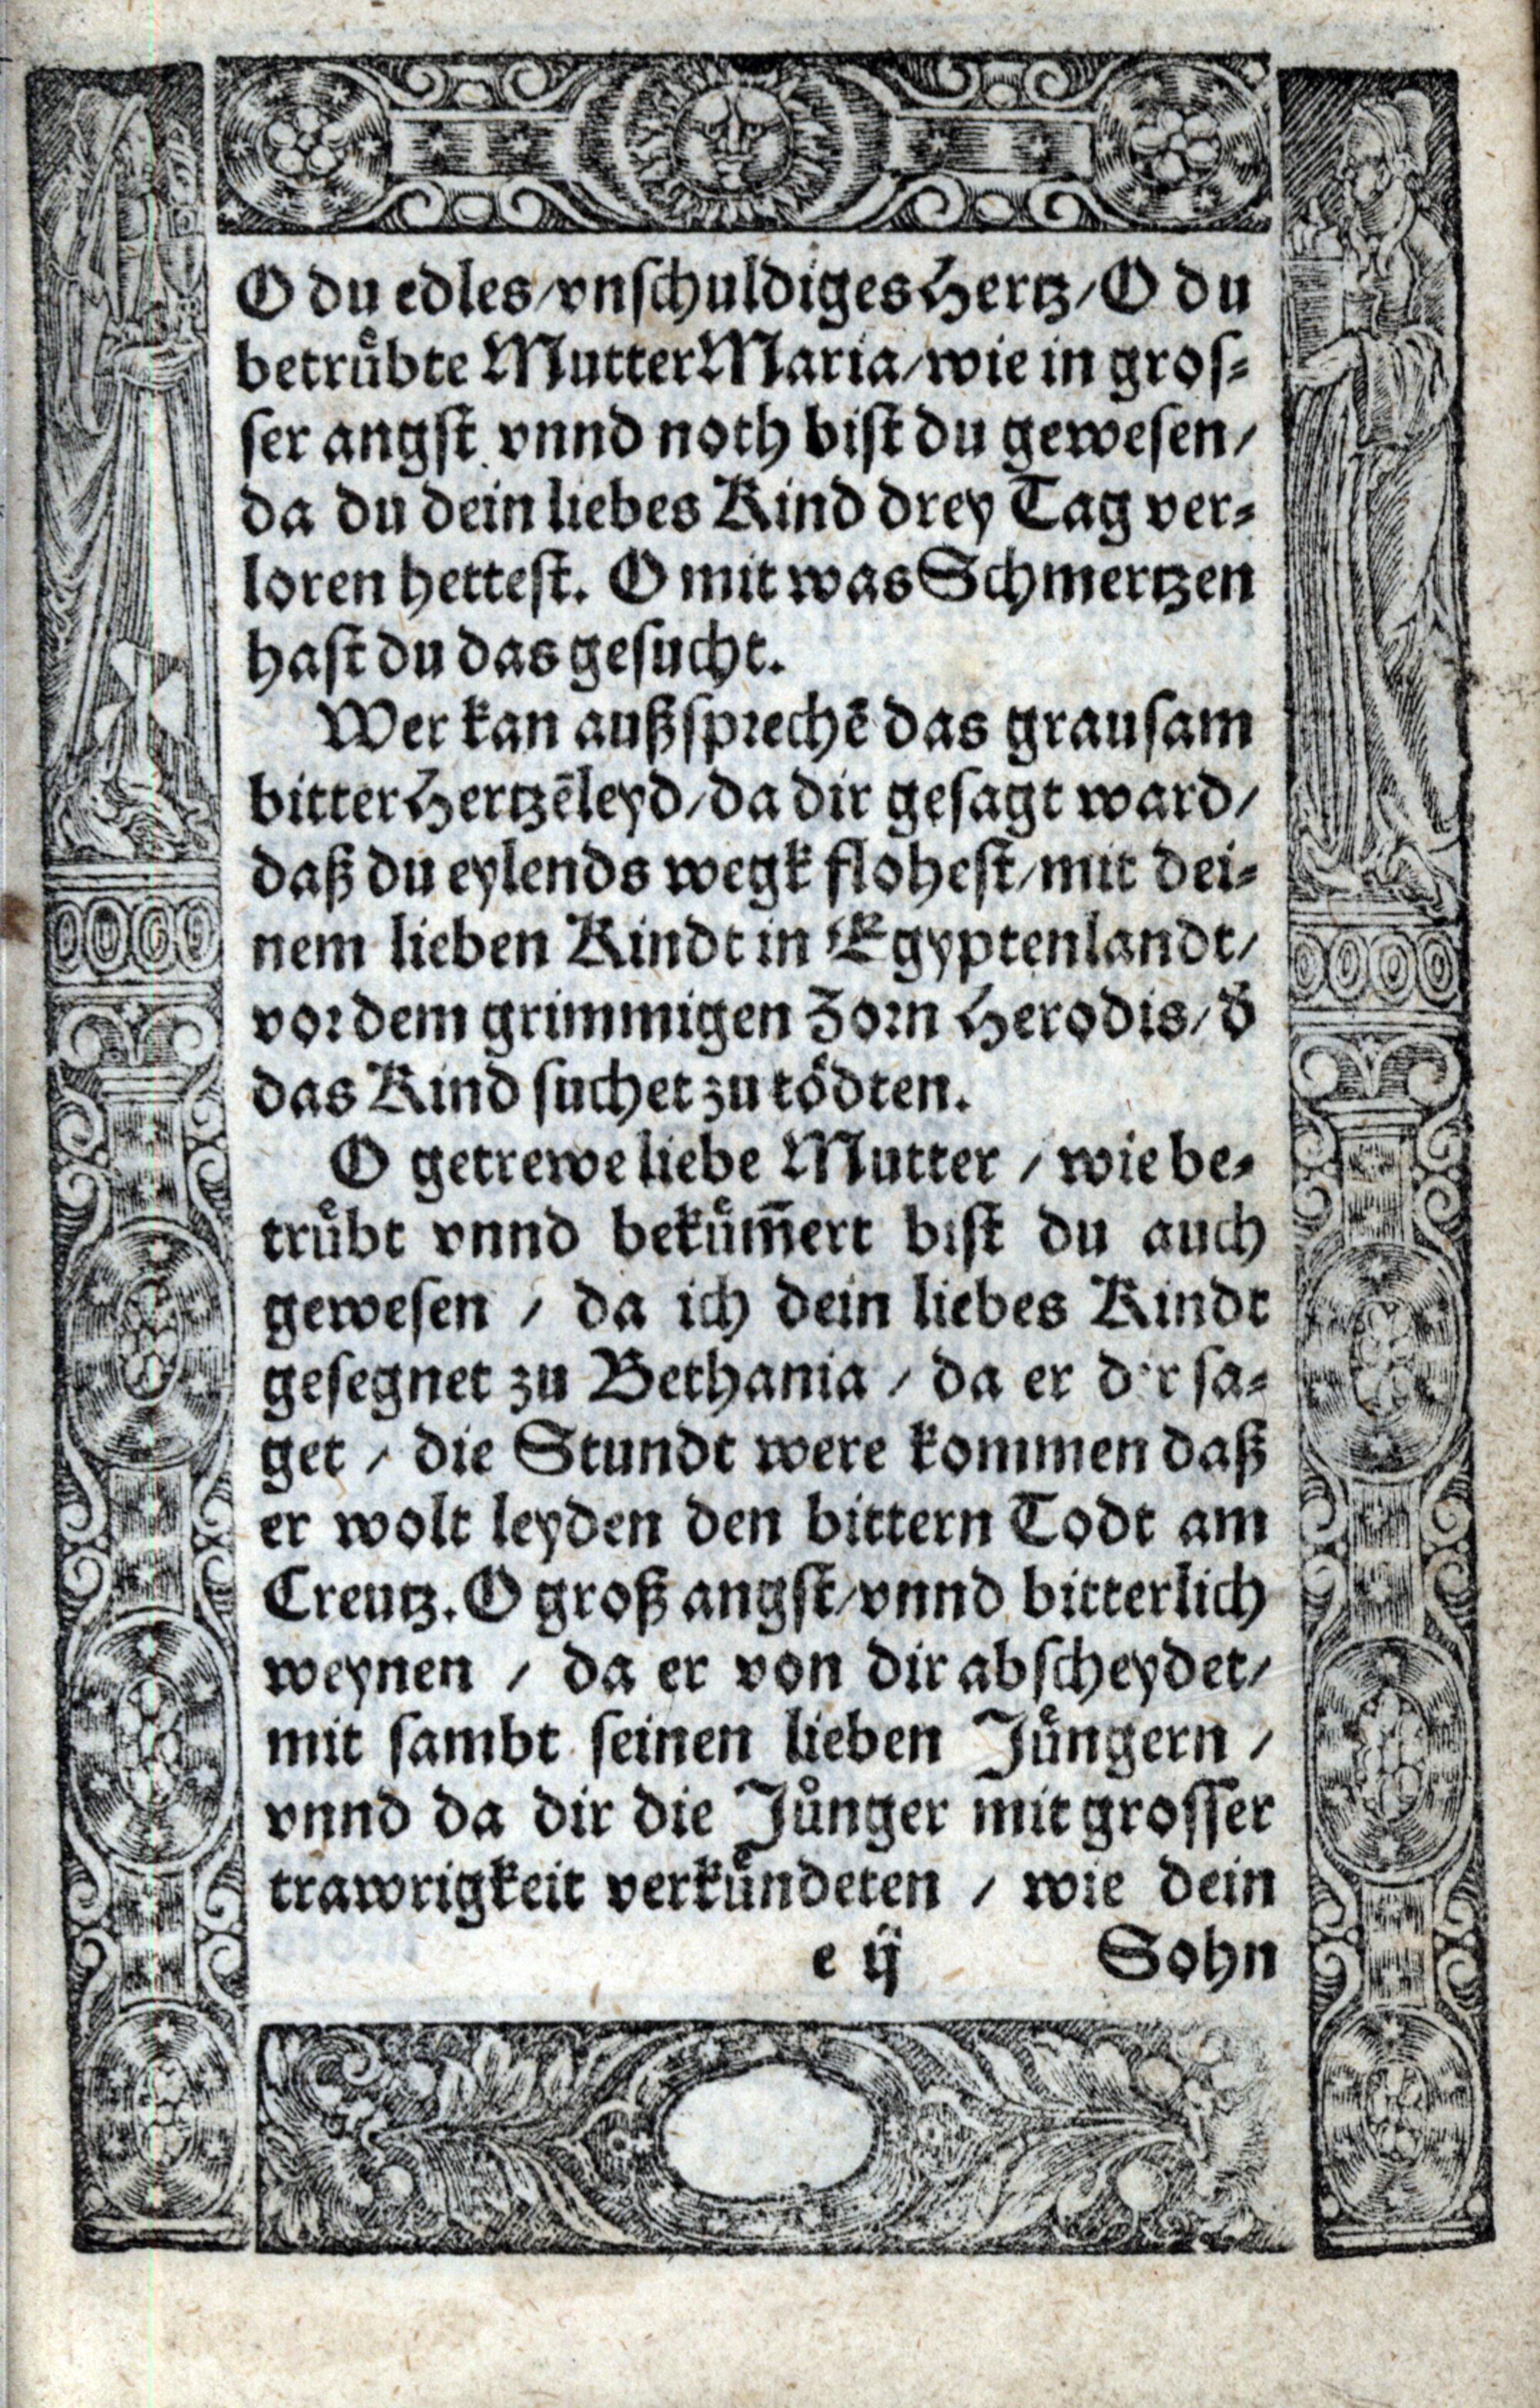 O du edles/vnschuldiges Hertz/O du
betruͤbte Mutter Maria/wie in gros⸗
ser angst vnnd noth bist du gewesen/
da du dein liebes Kind drey Tag ver⸗
loren hettest. O mit was Schmertzen
hast du das gesucht.
Wer kan außsprechē das grausam
bitter Hertzēleyd/da dir gesagt ward/
daß du eylends wegk flohest/mit dei⸗
nem lieben Kindt in Egyptenlandt/
vor dem grimmigen Zorn Herodis/d̕
das Kind suchet zu toͤdten.
O getrewe liebe Mutter / wie be⸗
truͤbt vnnd bekuͤm̄ert bist du auch
gewesen / da ich dein liebes Kindt
gesegnet zu Bethania / da er dir sa⸗
get / die Stundt were kommen daß
er wolt leyden den bittern Todt am
Creutz. O groß angst/vnnd bitterlich
weynen / da er von dir abscheydet/
mit sambt seinen lieben Juͤngern /
vnnd da dir die Juͤnger mit grosser
trawrigkeit verkuͤndeten / wie dein
e ij Sohn